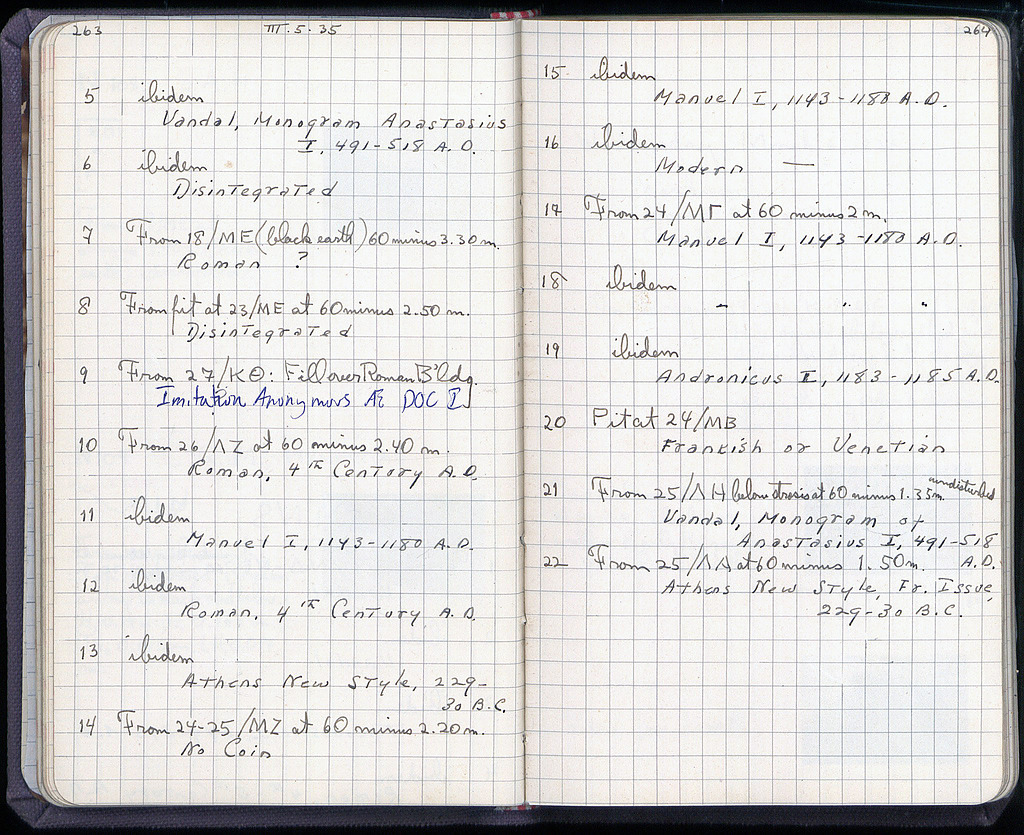 263 III.5.35
5 ibidem
Vandal, Monogram Anastasius
I, 491-518 A.D.
6 ibidem
Disintegrated
7 From 18/ME (black earth) 60 minus 3.30 m.
Roman ?
8 From pit at 23/ME at 60 minus 2.50 m.
Disintegrated
9 From 27/ΚΘ: Fill over Roman B'ldg.
Imitation Anonymous Æ DOC I
10 From 26/ΛΖ at 60 minus 2.40 m.
Roman, 4th Century A.D.
11 ibidem
Manuel I, 1143-1180 A.D.
12 ibidem
Roman, 4th Century A.D.
13 ibidem
Athens New Style, 229-
30 B.C.
14 From 24-25/ΜΖ at 60 minus 2.20 m.
No Coin
264
15 ibidem
Manuel I, 1143-1180 A.D.
16 ibidem
Modern —
17 From 24/ΜΓ at 60 minus 2 m.
Manuel I, 1143-1180 A.D.
18 ibidem
" " "
19 ibidem
Andronicus I, 1183-1185 A.D.
20 Pit at 24/MB
Frankish or Venetian
21 From 25/ΛΗ below stosis at 60 minus 1.35m. undisturbed
Vandal, Monogram of
Anastasius I, 491-518
A.D.
22 From 25/ΛΛ at 60 minus 1.50m.
Athens New Style, Fr. Issue,
229-30 B.C.